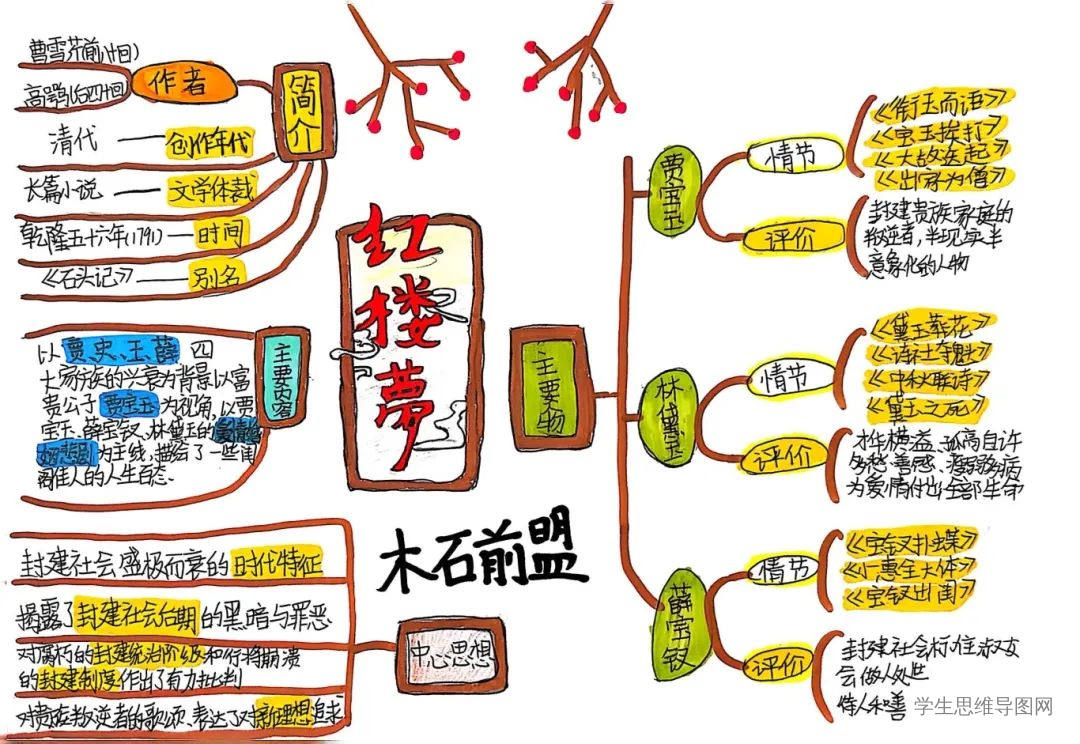 曹雪芹前八十回
高鹗(后四十回
作者
简介
清代 — 创作年代
长篇小说 — 文学体裁
乾隆五十六年(1791) — 时间
《石头记》 — 别名
主要内容
以贾、史、王、薛四
大家族的兴衰为背景以富
贵公子贾宝玉为视角,以贾
宝玉、薛宝钗、林黛玉的
为主线,描绘了一些闺
阁佳人的人生百态.
红楼夢
木石前盟
中心思想
封建社会盛极而衰的时代特征
揭露了封建社会后期的黑暗与罪恶
对腐朽的封建统治阶级和行将崩溃
的封建制度作出了有力批判
对贵族叛逆者的歌颂、表达了对新理想追求
主要人物
贾宝玉
情节
《衔玉而语》
《宝玉挨打》
《大故迭起》
《出家为僧》
评价
封建贵族家庭的
叛逆者,半现实半
意象化的人物
林黛玉
情节
《黛玉葬花》
《诗社夺魁》
《中秋联诗》
《黛玉之死》
评价
才华横溢、孤高自许
多愁善感、
为爱情付出全部生命
薛宝钗
情节
《宝钗扑蝶》
《小惠全大体》
《宝钗出闺》
评价
封建社会标准淑女
会做人处世
待人和善
学生思维导图网